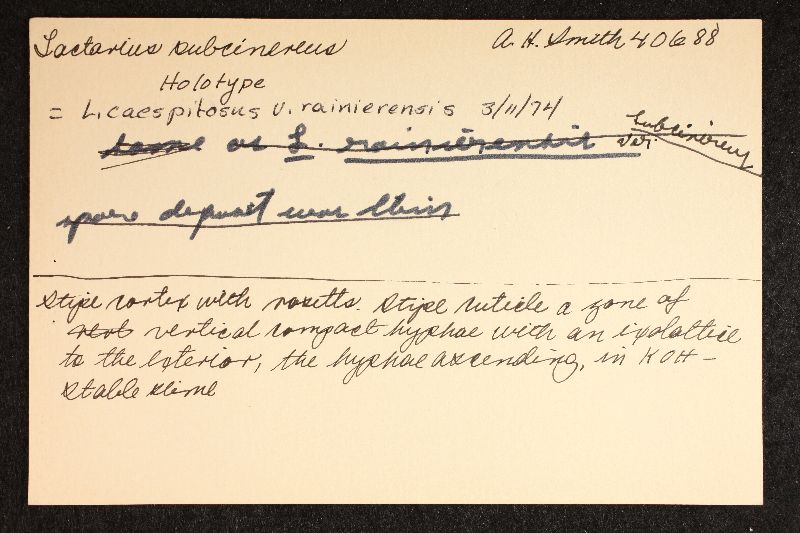 Lactarius subcinereus A. H. Smith 40688
Holotype
= L. caespitosus v. rainierensis 3/11/74
same as L. rainierensis var. subcinereus
spore deposit was thin
Stipe cortex with rosetts. Stipe cuticle a zone of
vertical compact hyphae with an ixolattice
to the exterior, the hyphae ascending, in KOH –
stable slime